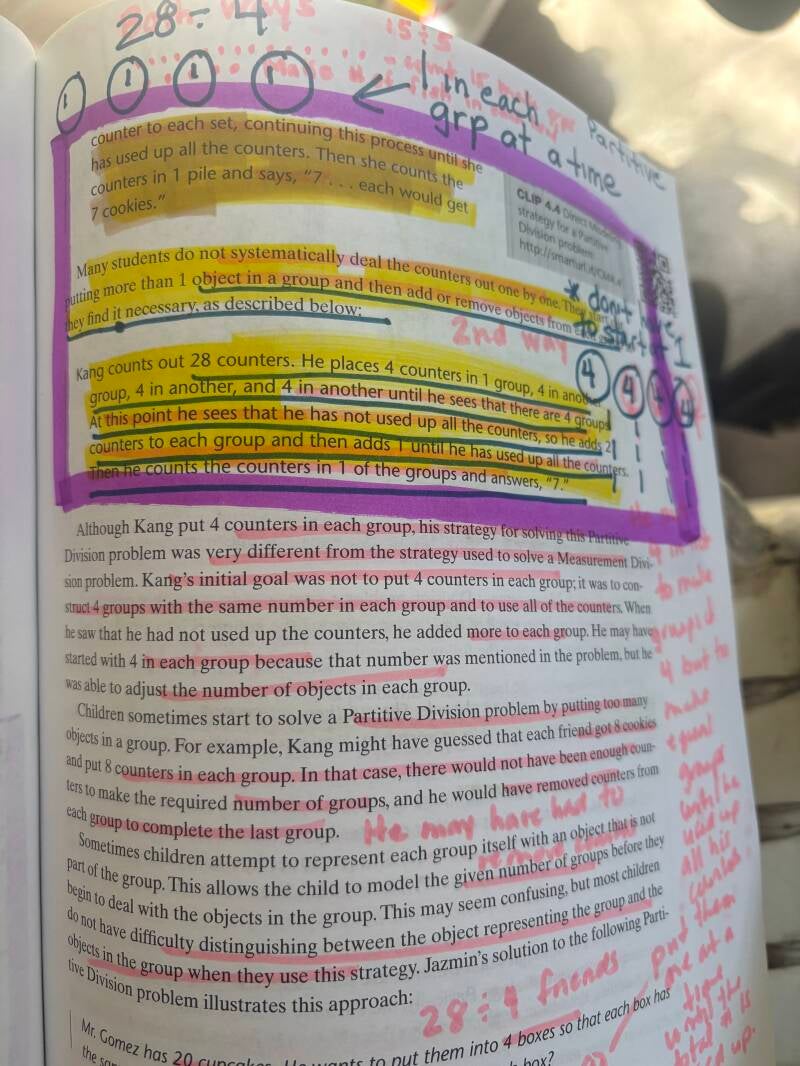 28 ÷ 4
15 ÷ 5
1 1 1 1
1 in each
grp at a time
Partitive
counter to each set, continuing this process until she
has used up all the counters. Then she counts the
counters in 1 pile and says, “7 . . . each would get
7 cookies.”
CLIP 4.4 Direct Modeling
strategy for a Partitive
Division problem
Many students do not systematically deal the counters out one by one. They start
putting more than 1 object in a group and then add or remove objects from
they find it necessary, as described below:
* don't have
to start at 1
2nd way
Kang counts out 28 counters. He places 4 counters in 1 group, 4 in another
group, 4 in another, and 4 in another until he sees that there are 4 groups
At this point he sees that he has not used up all the counters, so he adds 2
counters to each group and then adds 1 until he has used up all the counters.
Then he counts the counters in 1 of the groups and answers, “7.”
4 4 4 4
Although Kang put 4 counters in each group, his strategy for solving this Partitive
Division problem was very different from the strategy used to solve a Measurement Divi-
sion problem. Kang’s initial goal was not to put 4 counters in each group; it was to con-
struct 4 groups with the same number in each group and to use all of the counters. When
he saw that he had not used up the counters, he added more to each group. He may have
started with 4 in each group because that number was mentioned in the problem, but he
was able to adjust the number of objects in each group.
Children sometimes start to solve a Partitive Division problem by putting too many
objects in a group. For example, Kang might have guessed that each friend got 8 cookies
and put 8 counters in each group. In that case, there would not have been enough coun-
ters to make the required number of groups, and he would have removed counters from
each group to complete the last group.
He may have had to
Sometimes children attempt to represent each group itself with an object that is not
part of the group. This allows the child to model the given number of groups before they
begin to deal with the objects in the group. This may seem confusing, but most children
do not have difficulty distinguishing between the object representing the group and the
objects in the group when they use this strategy. Jazmin’s solution to the following Parti-
tive Division problem illustrates this approach:
28 ÷ 4 friends
to make
4 but to
make
equal
groups
until he
used up
all his
put them
one at a
time
until the
total # is
used up.
Mr. Gomez has 20 cupcakes. He wants to put them into 4 boxes so that each box has
box?